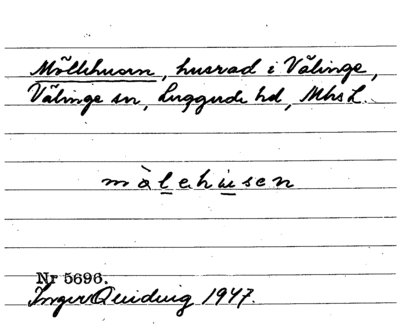 Möllehusen, husrad i Välinge,
Välinge sn, Luggude hd, Mhs L.
mòlehusen
Nr 5696.
Inger Quiding 1947.